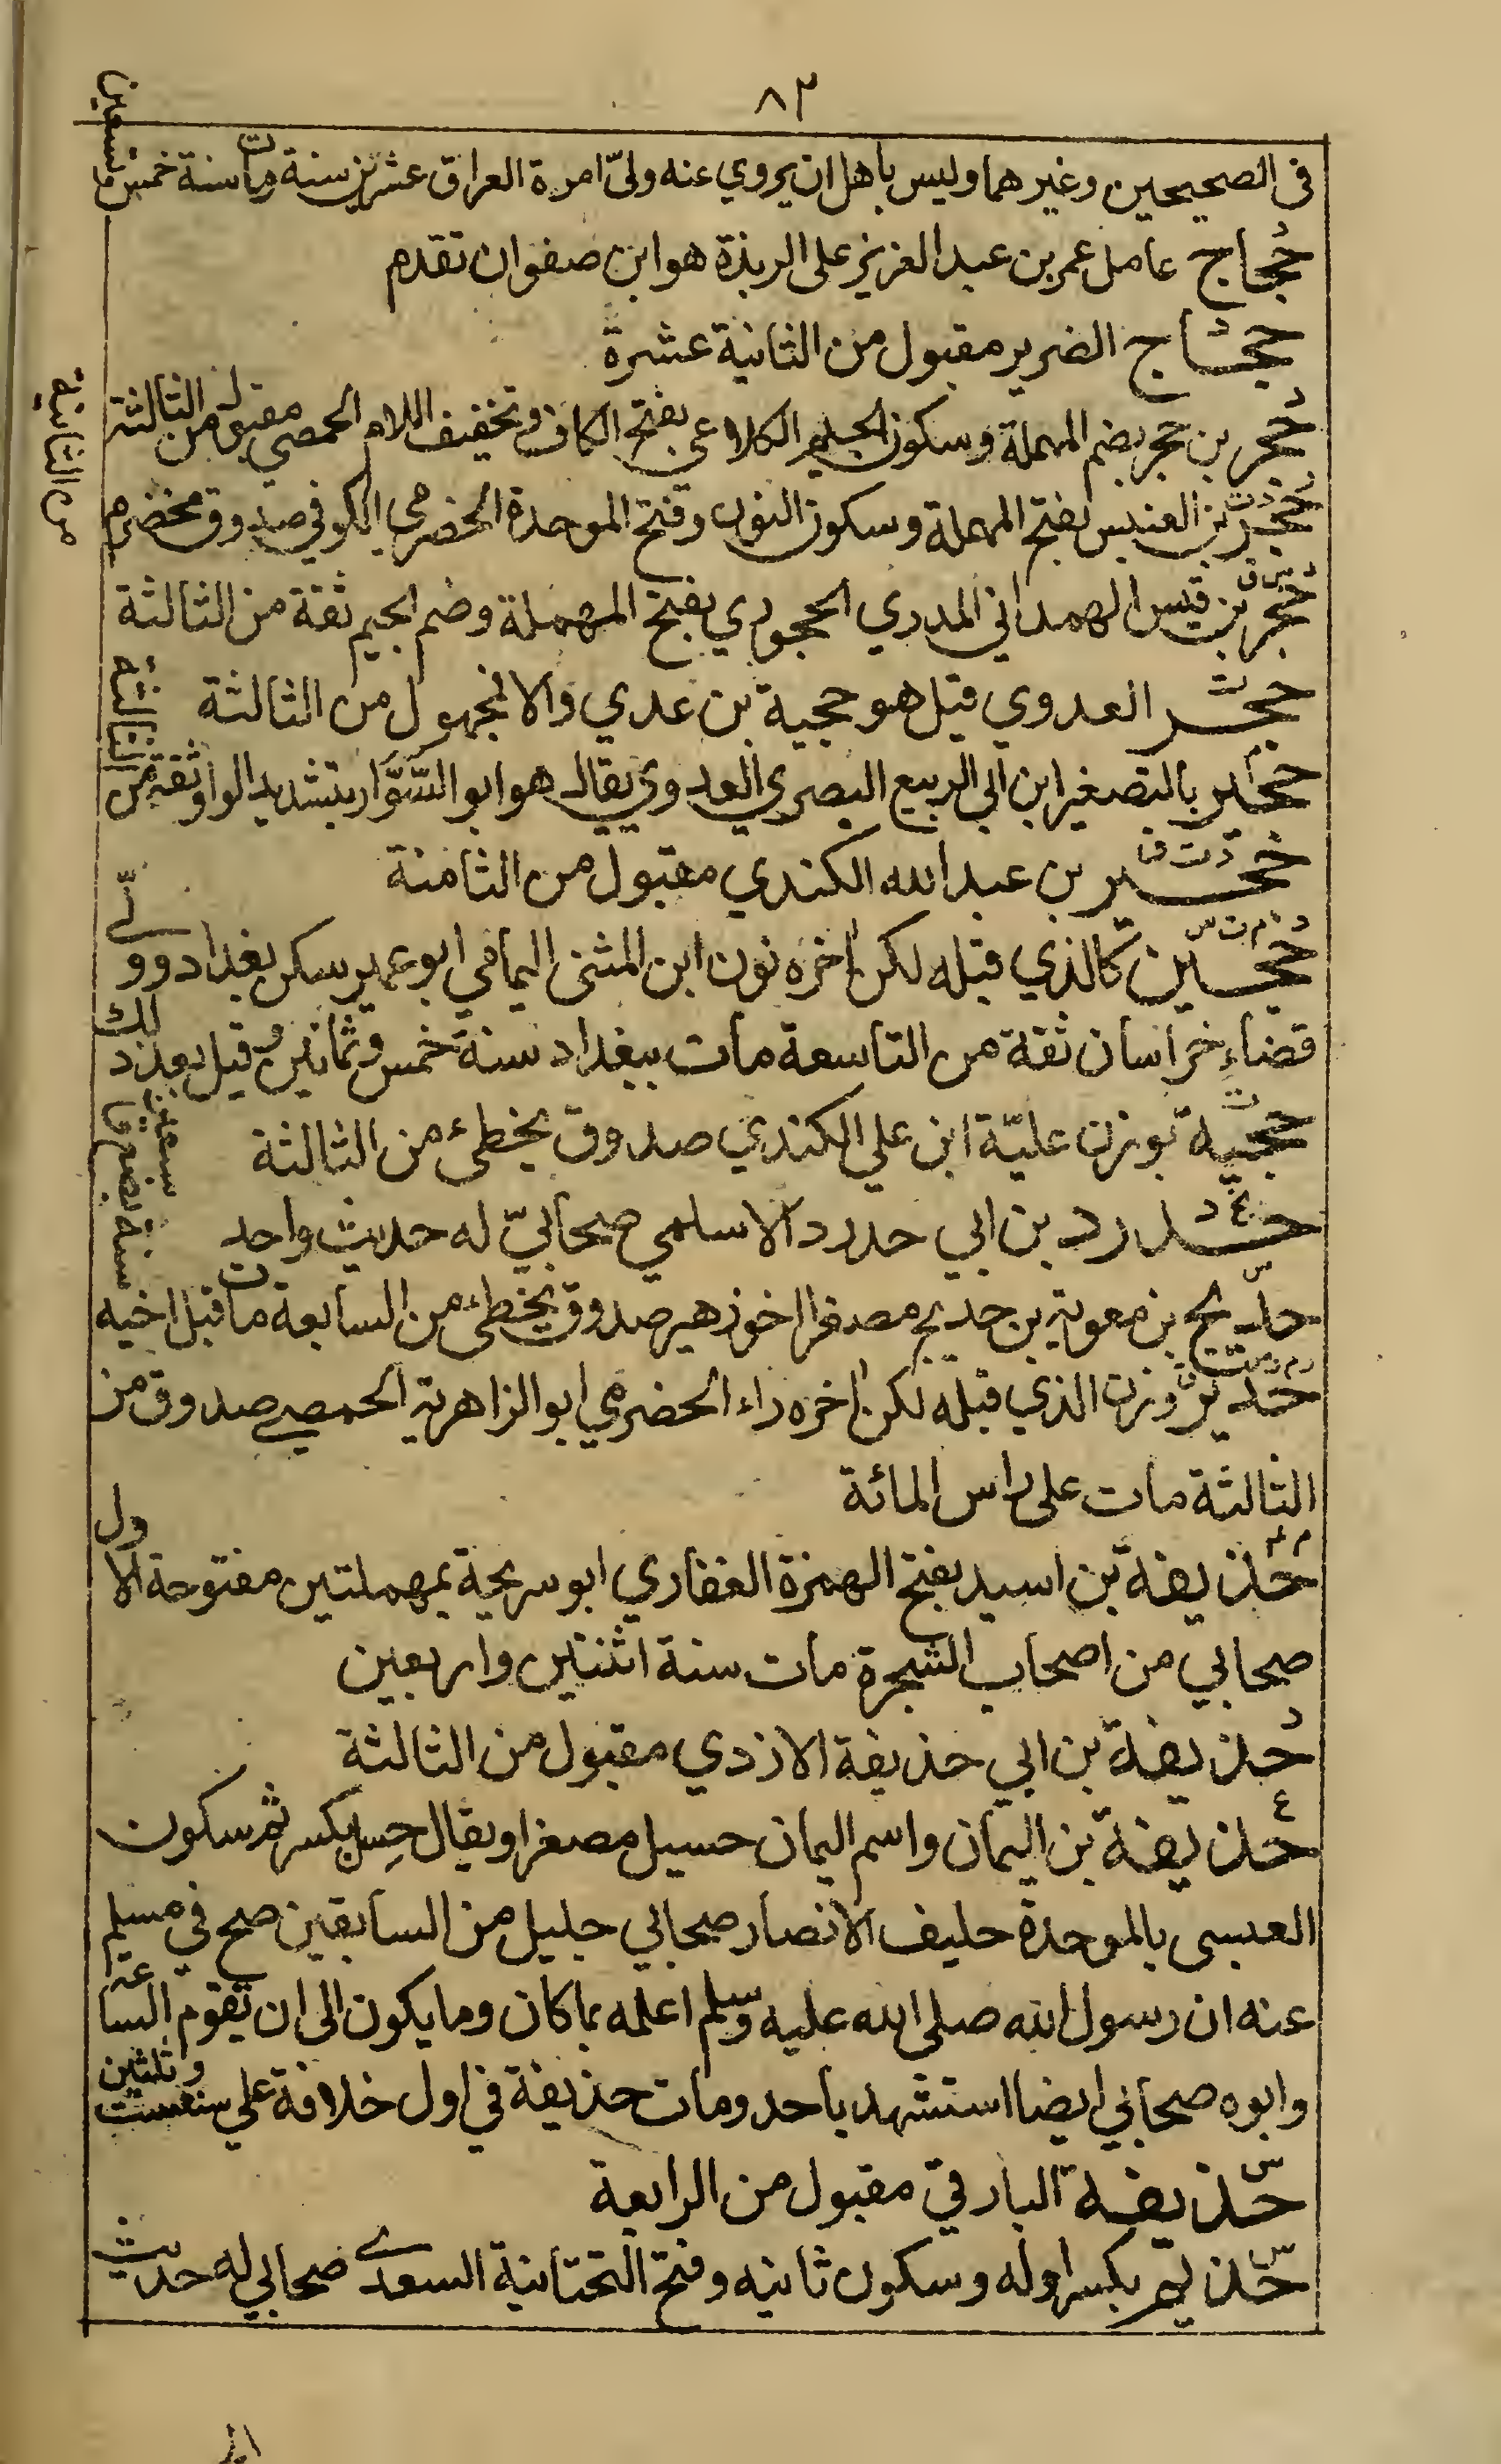 ٨٢
في الصحيحين وغيرهما وليس باهل ان يروي عنه ولّي امرة العراق عشرين سنة ومات سنة خمس وتسعين
حجاج عامل عمر بن عبد العزيز على الربذة هو ابن صفوان تقدم
حجاج الضرير مقبول من الثانية عشرة
حُجر بن حجر بضم المهملة وسكون الجيم الكلاعي بفتح الكاف وتخفيف اللام الحمصي مقبول من الثالثة
حُجر بن العنبس بفتح المهملة وسكون النون وفتح الموحدة الحضرمي الكوفي صدوق مخضرم من الثانية
حجر بن قيس الهمداني المدري الحجوري بفتح المهملة وضم الجيم ثقة من الثالثة
حجر العدوي قيل هو حجية بن عدي والا فمجهول من الثالثة
حجير بالتصغير ابن ابي الربيع البصري العدوي يقال هو ابو السَّوَّار بتشديد الواو ثقة من الثالثة
حجير بن عبد الله الكندي مقبول من الثامنة
حُجين كالذي قبله لكن اخره نون ابن المثنى اليمامي ابو عمير سكن بغداد وولي
قضاء خراسان ثقة من التاسعة مات ببغداد سنة خمس ومائتين وقيل بعد ذلك
حجية بوزن عليّة ابن علي الكندي صدوق يخطئ من الثالثة
حدرد بن ابي حدرد الاسلمي صحابيّ له حديث واحد
حديج بن معوية بن حديج مصغرا اخو زهير صدوق يخطئ من السابعة مات قبل اخيه سنة بضع وسبعين
حدير بوزن الذي قبله لكن اخره راء الحضرمي ابو الزاهرية الحمصي صدوق من
الثالثة مات على راس المائة
حُذيفة بن اسيد بفتح الهمزة الغفاري ابو سريحة بمهملتين مفتوحة الاول
صحابي من اصحاب الشجرة مات سنة اثنتين واربعين
حُذيفة بن ابي حذيفة الازدي مقبول من الثالثة
حذيفة بن اليمان واسم اليمان حسيل مصغرا ويقال حِسل بكسر ثم سكون
العبسى بالموحدة حليف الانصار صحابي جليل من السابقين صح في مسلم
عنه ان رسول الله صلى الله عليه وسلم اعلمه بما كان وما يكون الى ان تقوم الساعة
وابوه صحابي ايضا استشهد باحد ومات حذيفة في اول خلافة علي سنة ست وثلثين
حذيفة البارقي مقبول من الرابعة
حذيم بكسر اوله وسكون ثانيه وفتح التحتانية السعدي صحابي له حديث